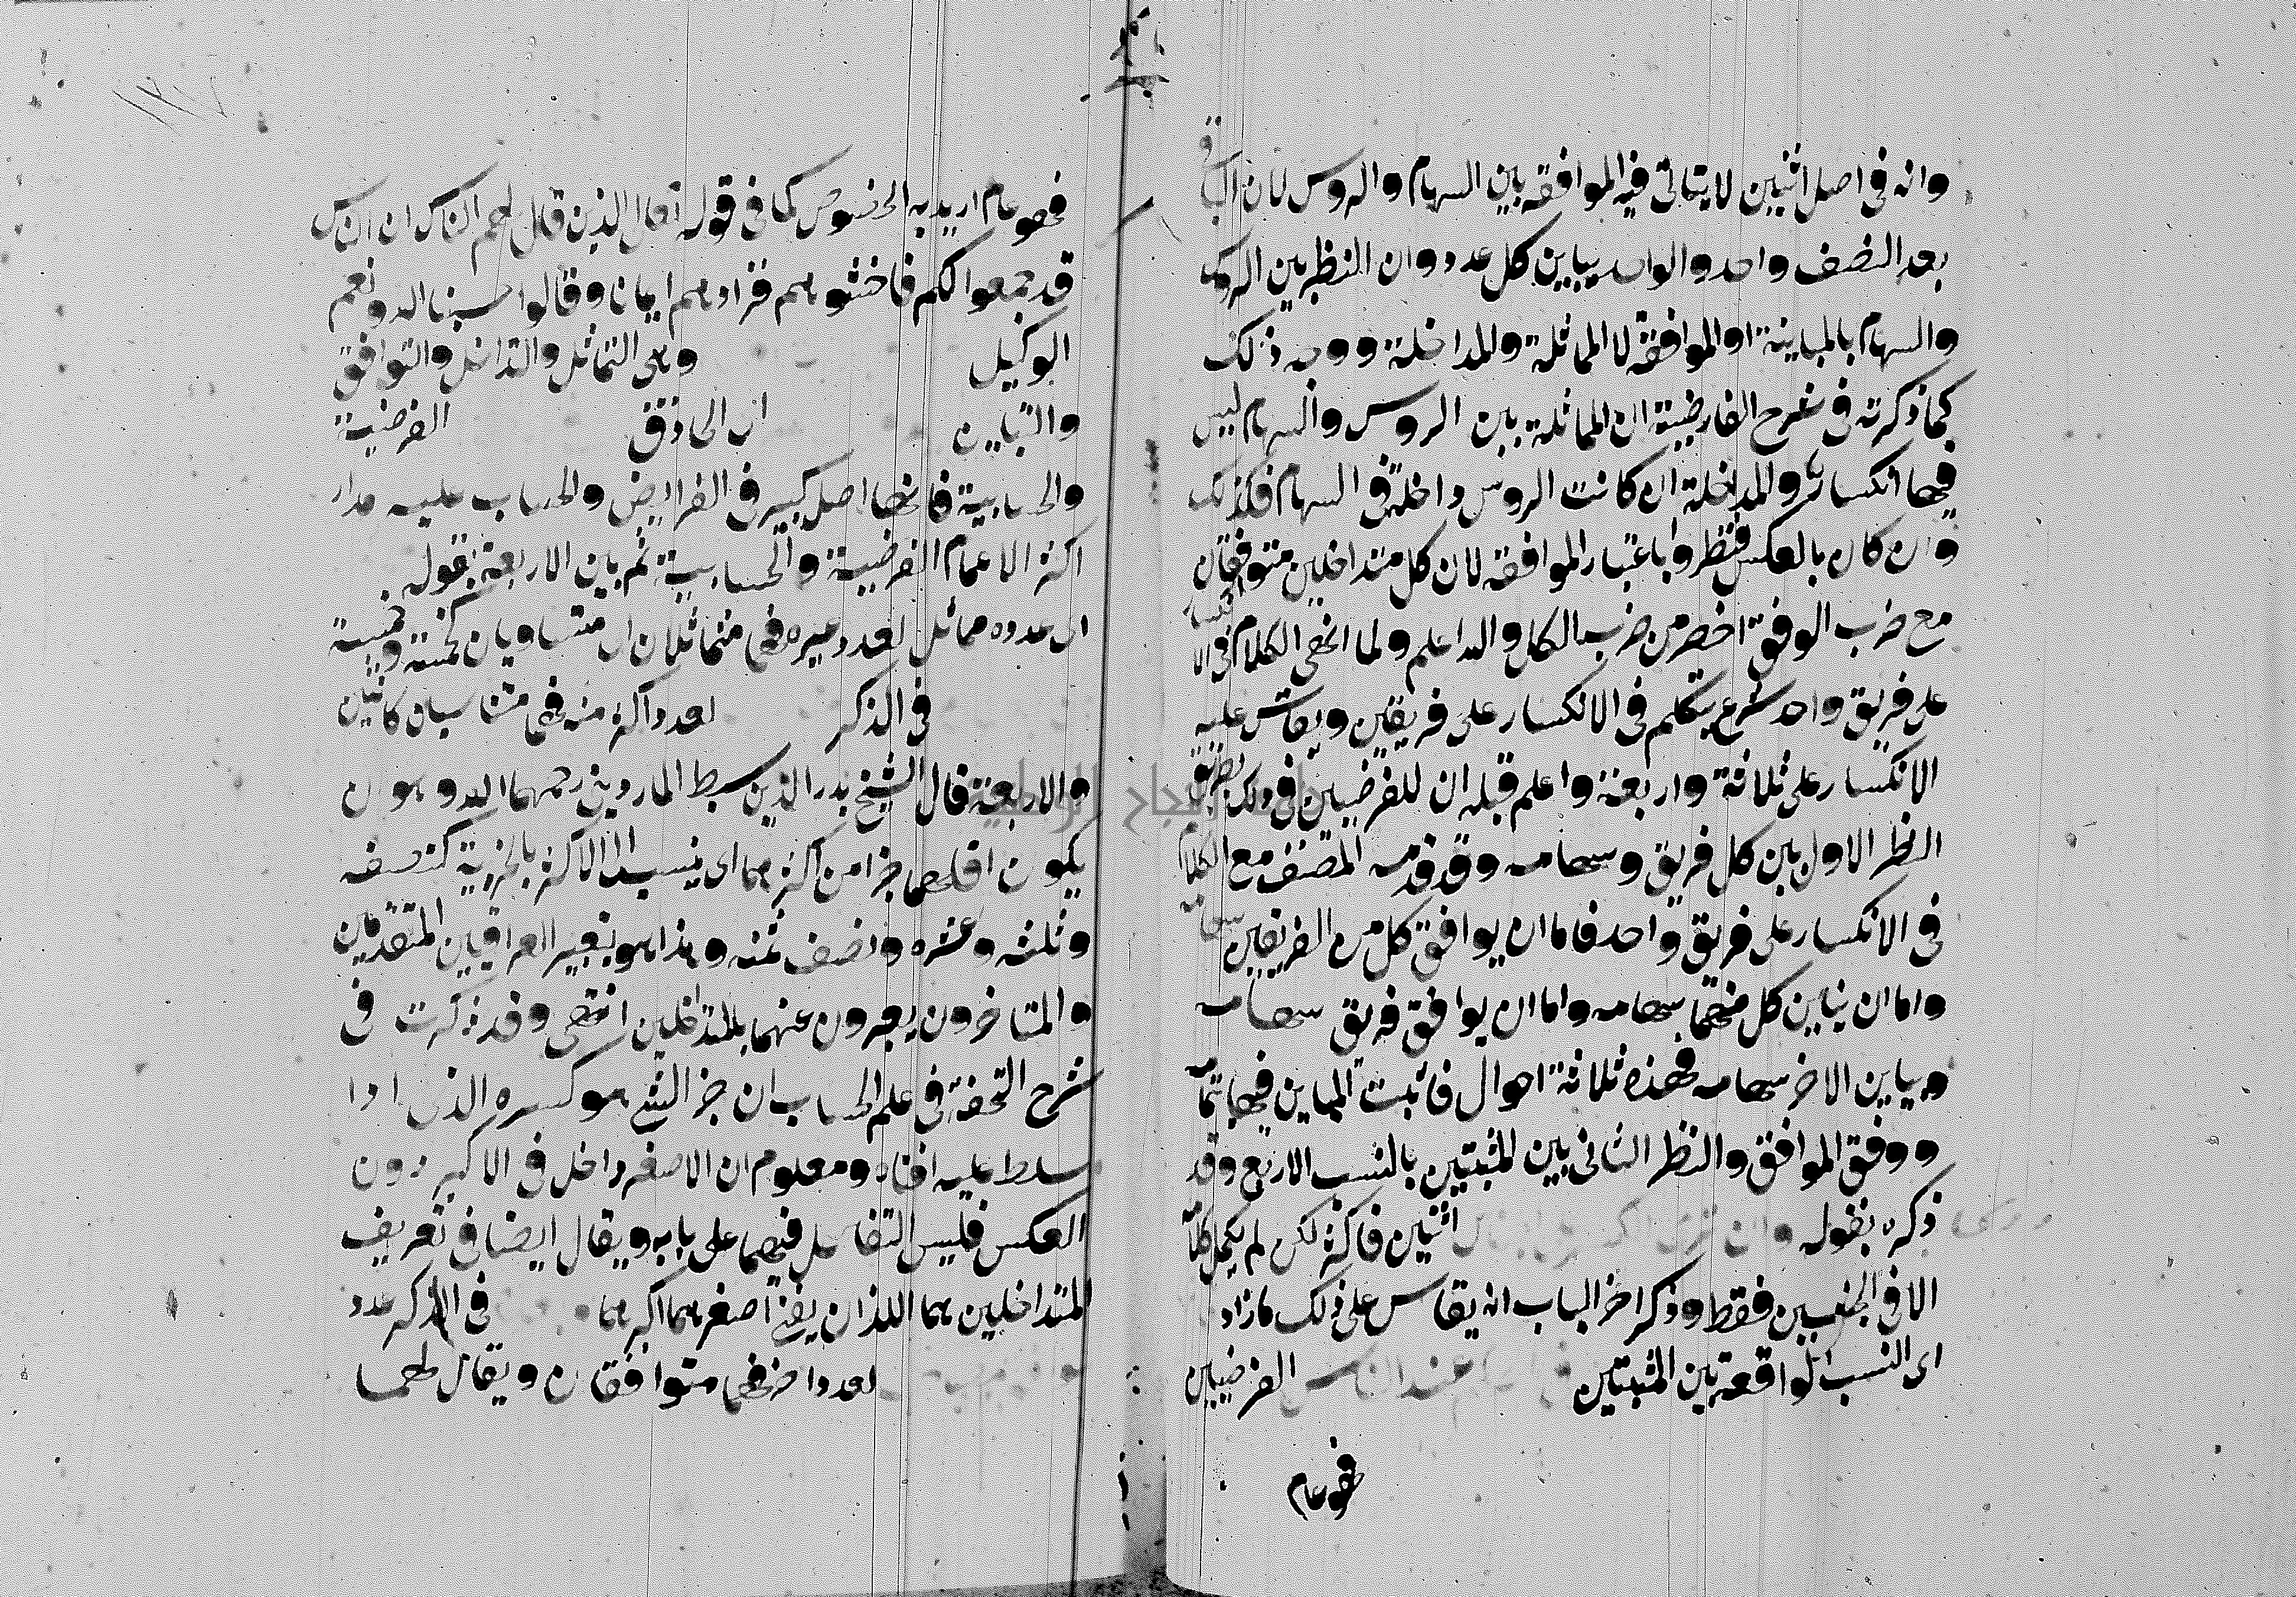 وانه فى اصل اثنين لا يتاتى فيه الموافقه بين السهام والروس لان الباقى
بعد النصف واحد والواحد يباين كل عدد وان النظر بين الروس
والسهام بالمباينة او الموافقة لا المماثلة والمداخلة ووجه ذلك
كما ذكرته فى شرح الفارضية ان المماثلة بين الروس والسهام ليس
فيها انكسار والمداخلة ان كانت الروس داخلة فى السهام فكذلك
وان كان بالعكس فنظروا باعتبار الموافقه لان كل متداخلين متوافقان
مع ضرب الوفق اخصر من ضرب الكل والله اعلم ولما انهى الكلام فى الانكسار
على فريق واحد شرع يتكلم فى الانكسار على فريقين ويقاس عليه
الانكسار على ثلاثة واربعة واعلم قبله ان للفرضيين فى ذلك نظرين
النظر الاول بين كل فريق وسهامه وقد قدمه المصنف مع الكلام
فى الانكسار على فريق واحد فاما ان يوافق كل من الفريقين سهامه
واما ان يباين كل منهما سهامه واما ان يوافق فريق سهامه
ويباين الاخر سهامه فهذه ثلاثة احوال فاثبت المباين فيها تماما
ووفق الموافق والنظر الثانى بين المثبتين بالنسب الاربع وقد
ذكره بقوله وان اثنين فاكثر لكن لم يكمل كلامه
الا فى الجنسين فقط وذكر اخر الباب انه يقاس على ذلك ما زاد
اى النسب الواقعة بين المثبتين عند الناس الفرضيين
فهو عام
فهو عام اريد به الخصوص كما فى قوله تعالى الذين قال لهم الناس ان الناس
قد جمعوا لكم فاخشوهم فزادهم ايمانا وقالوا حسبنا الله ونعم
الوكيل وهى التماثل والتداخل والتوافق
والتباين اى الحاذق الفرضية
والحسابية فانها اصل كبير فى الفرايض والحساب عليه مدار
اكثر الاعمال الفرضية والحسابية ثم بين الاربعة بقوله
اى عدده مماثل لعدد غيره فهما متماثلان اى متساويان كخمسة وخمسة
فى الذكر لعدد اكثر منه فهما متناسبان كاثنين
والاربعة قال الشيخ بدر الدين سبط الماردينى رحمهما الله وهو ان
يكون اقلهما جزا من اكثرهما اى ينسب الى الاكثر بالجزية كنصفه
وثلثه وعشره ونصف ثمنه وهذا هو تعبير العراقيين المتقدمين
والمتاخرون يعبرون عنهما بالمتداخلين انتهى وقد ذكرت فى
شرح التحفة فى علم الحساب ان جز الشئ هو كسره الذى اذا
سلط عليه افناه ومعلوم ان الاصغر داخل فى الاكبر دون
العكس فليس التفاعل فيهما على بابه ويقال ايضا فى تعريف
المتداخلين هما اللذان يفنى اصغرهما اكبرهما فى الذكر عدد
لعدد اخر فهما متوافقان ويقال لهما